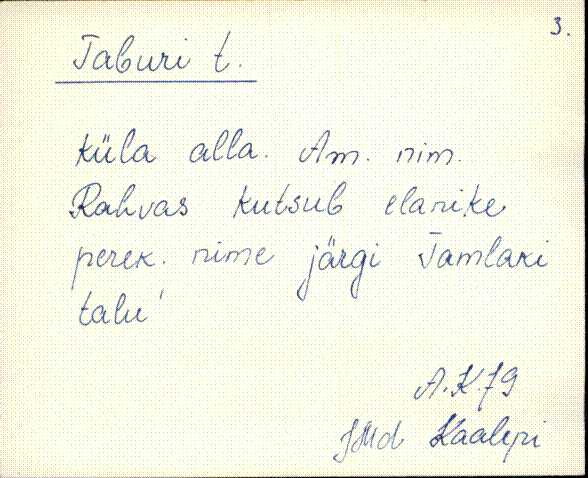 3.
Taburi t.
Küla alla. Am. nim.
Rahvas kutsub elanike
perek. nime järgi Tamlaki
talu'
A.K.79
Kaalepi